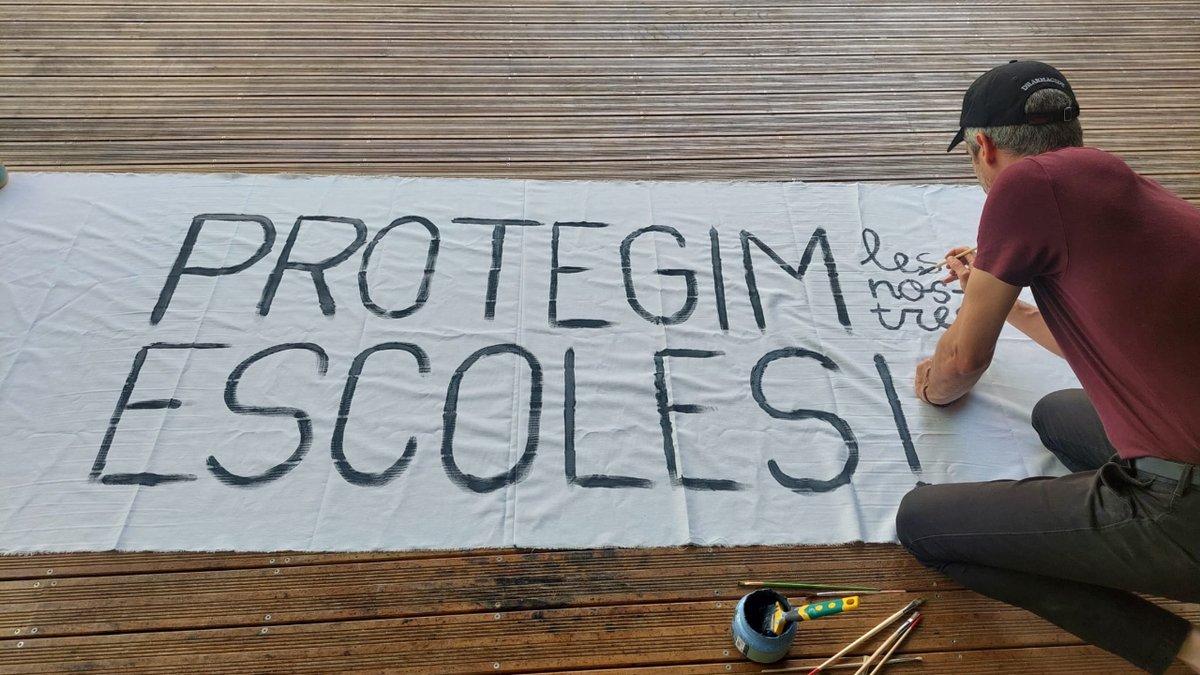 PROTEGIM
les
nos-
tres
ESCOLES!